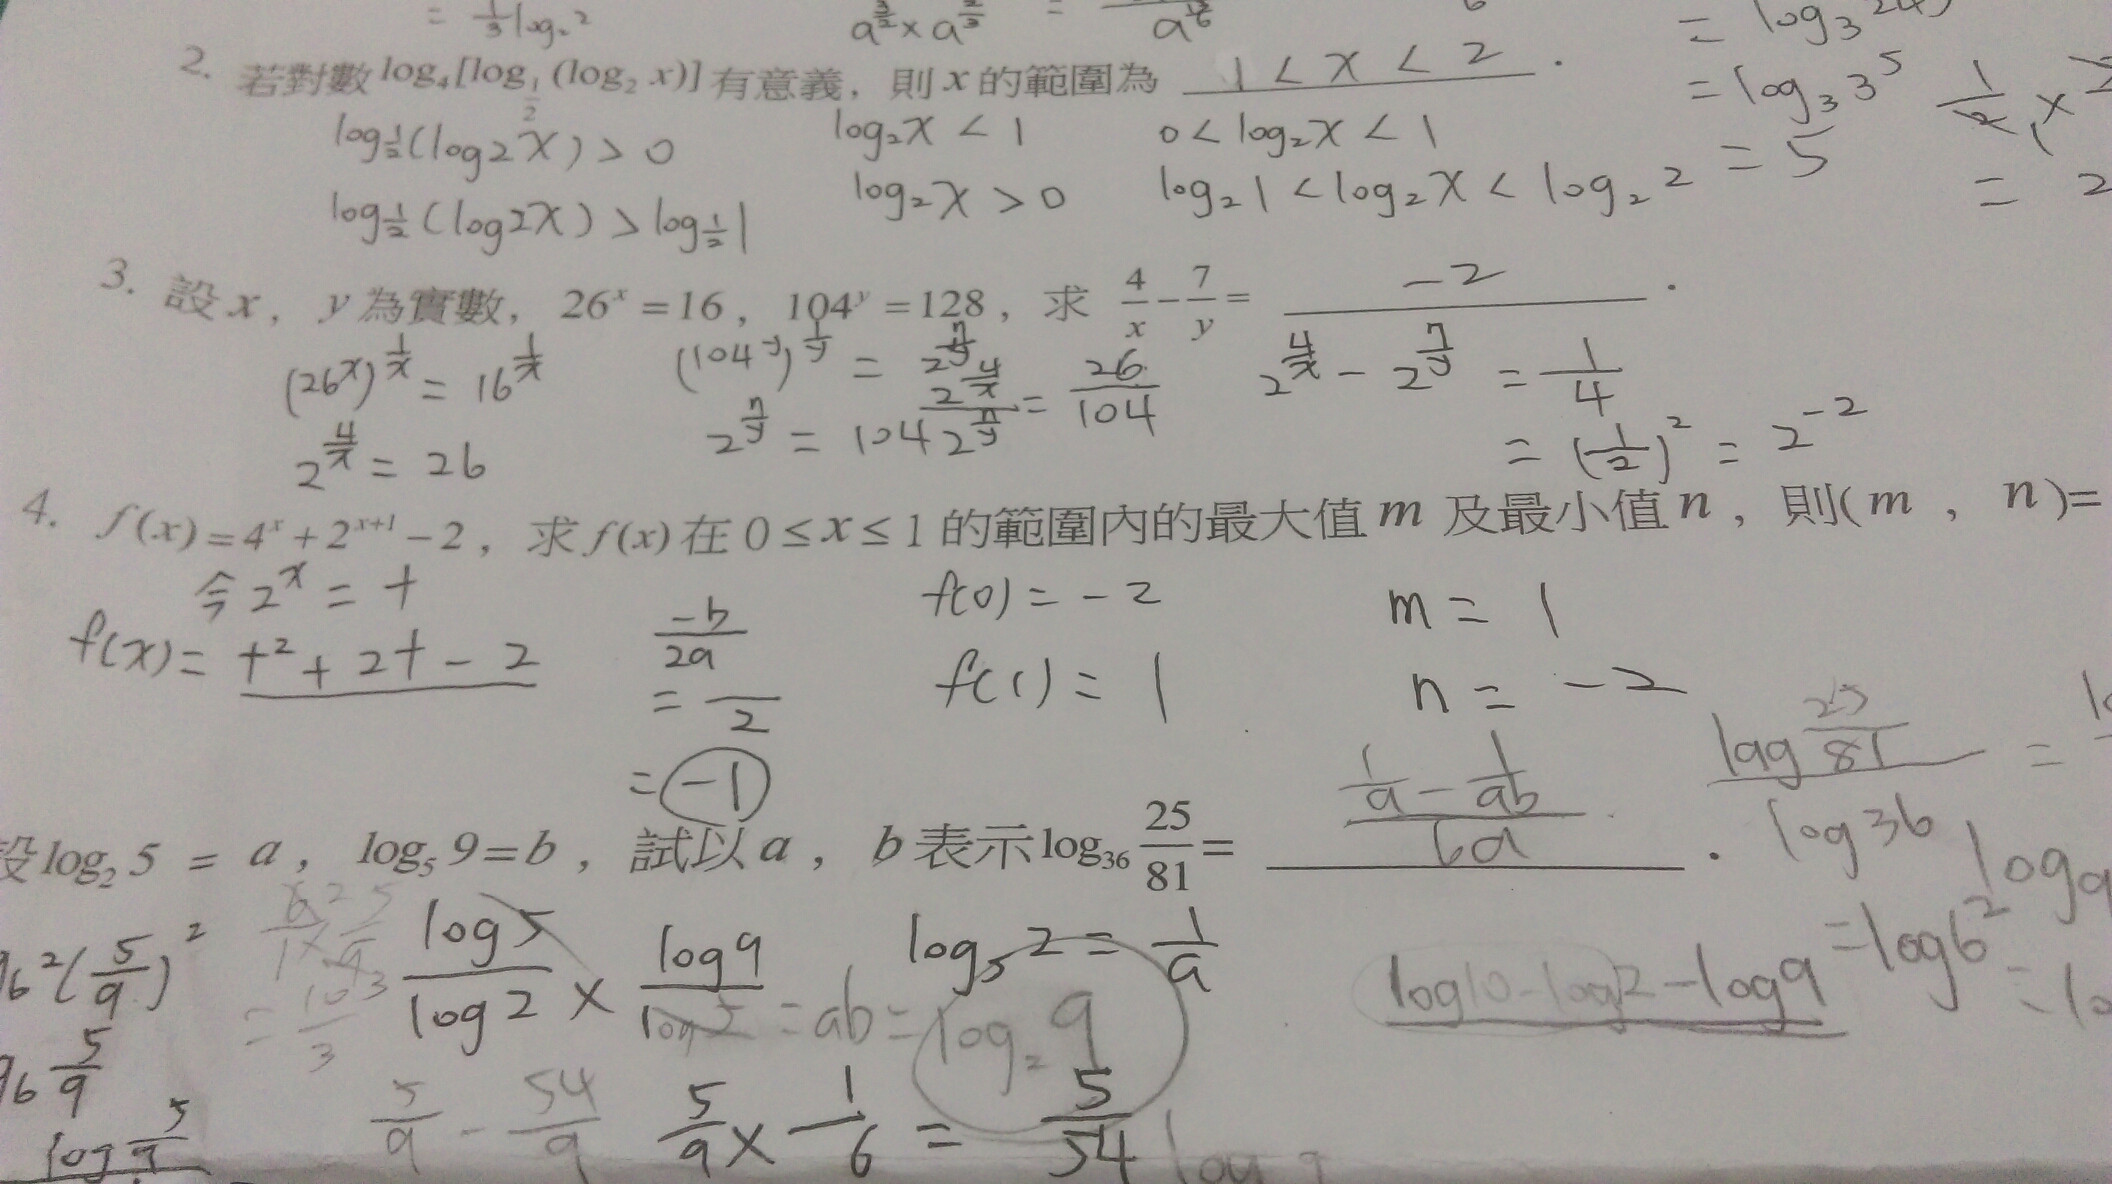 = 1/3 log₂ 2
a^{3/2} × a^{2/3} =
= log₃ 3⁵
= 5
2. 若對數 log₄[log_{1/2}(log₂ x)] 有意義，則 x 的範圍為 1 < x < 2 .
log_{1/2}(log2x) > 0 log₂x < 1 0 < log₂x < 1
log_{1/2}(log2x) > log_{1/2}1 log₂x > 0 log₂1 < log₂x < log₂2
3. 設 x，y 為實數，26^x = 16，104^y = 128，求 4/x − 7/y = −2 .
(26^x)^{1/x} = 16^{1/x} (104^y)^{1/y} = 2^{7/y} 2^{4/x}/2^{7/y} = 26/104 2^{4/x} − 2^{7/y} = 1/4
2^{4/x} = 26 2^{7/y} = 104 = (1/2)² = 2^{−2}
4. f(x) = 4^x + 2^{x+1} − 2，求 f(x) 在 0 ≤ x ≤ 1 的範圍內的最大值 m 及最小值 n，則(m，n)=
令 2^x = t f(0) = −2 m = 1
f(x) = t² + 2t − 2 −b/2a f(1) = 1 n = −2
= −/2
= −1
設 log₂ 5 = a，log₅ 9 = b，試以 a，b 表示 log₃₆ 25/81 = (1/a − 1/ab)/6a .
log 25/81 / log36 =
log5/log2 × log9/log5 = ab = log₂ 9 log₅ 2 = 1/a
log10 − log2 − log9 = log6²
(5/9)²
= 10/3
5/9
5/9 − 54/9 5/9 × 1/6 = 5/54
log 5/9